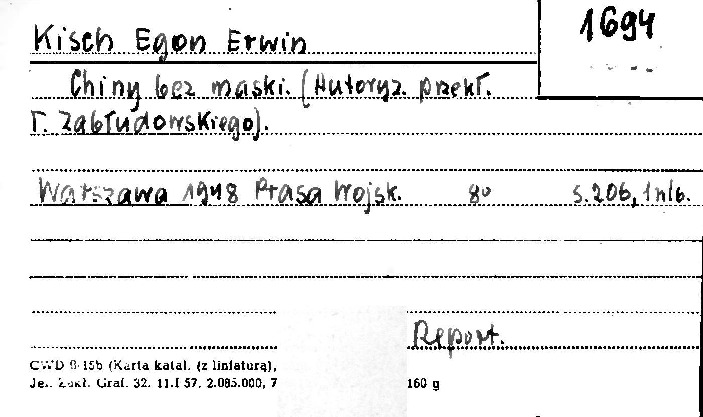 1694
Kisch Egon Erwin
Chiny bez maski. (Autoryz. przekł.
T. Zabłudowskiego).
Warszawa 1948 Prasa Wojsk. 8° s. 206, 1 nlb.
Report.
CWD 8-15b (Karta katal. (z liniaturą),
Jel. Zakł. Graf. 32. 11.I 57. 2.085.000, 7 160 g